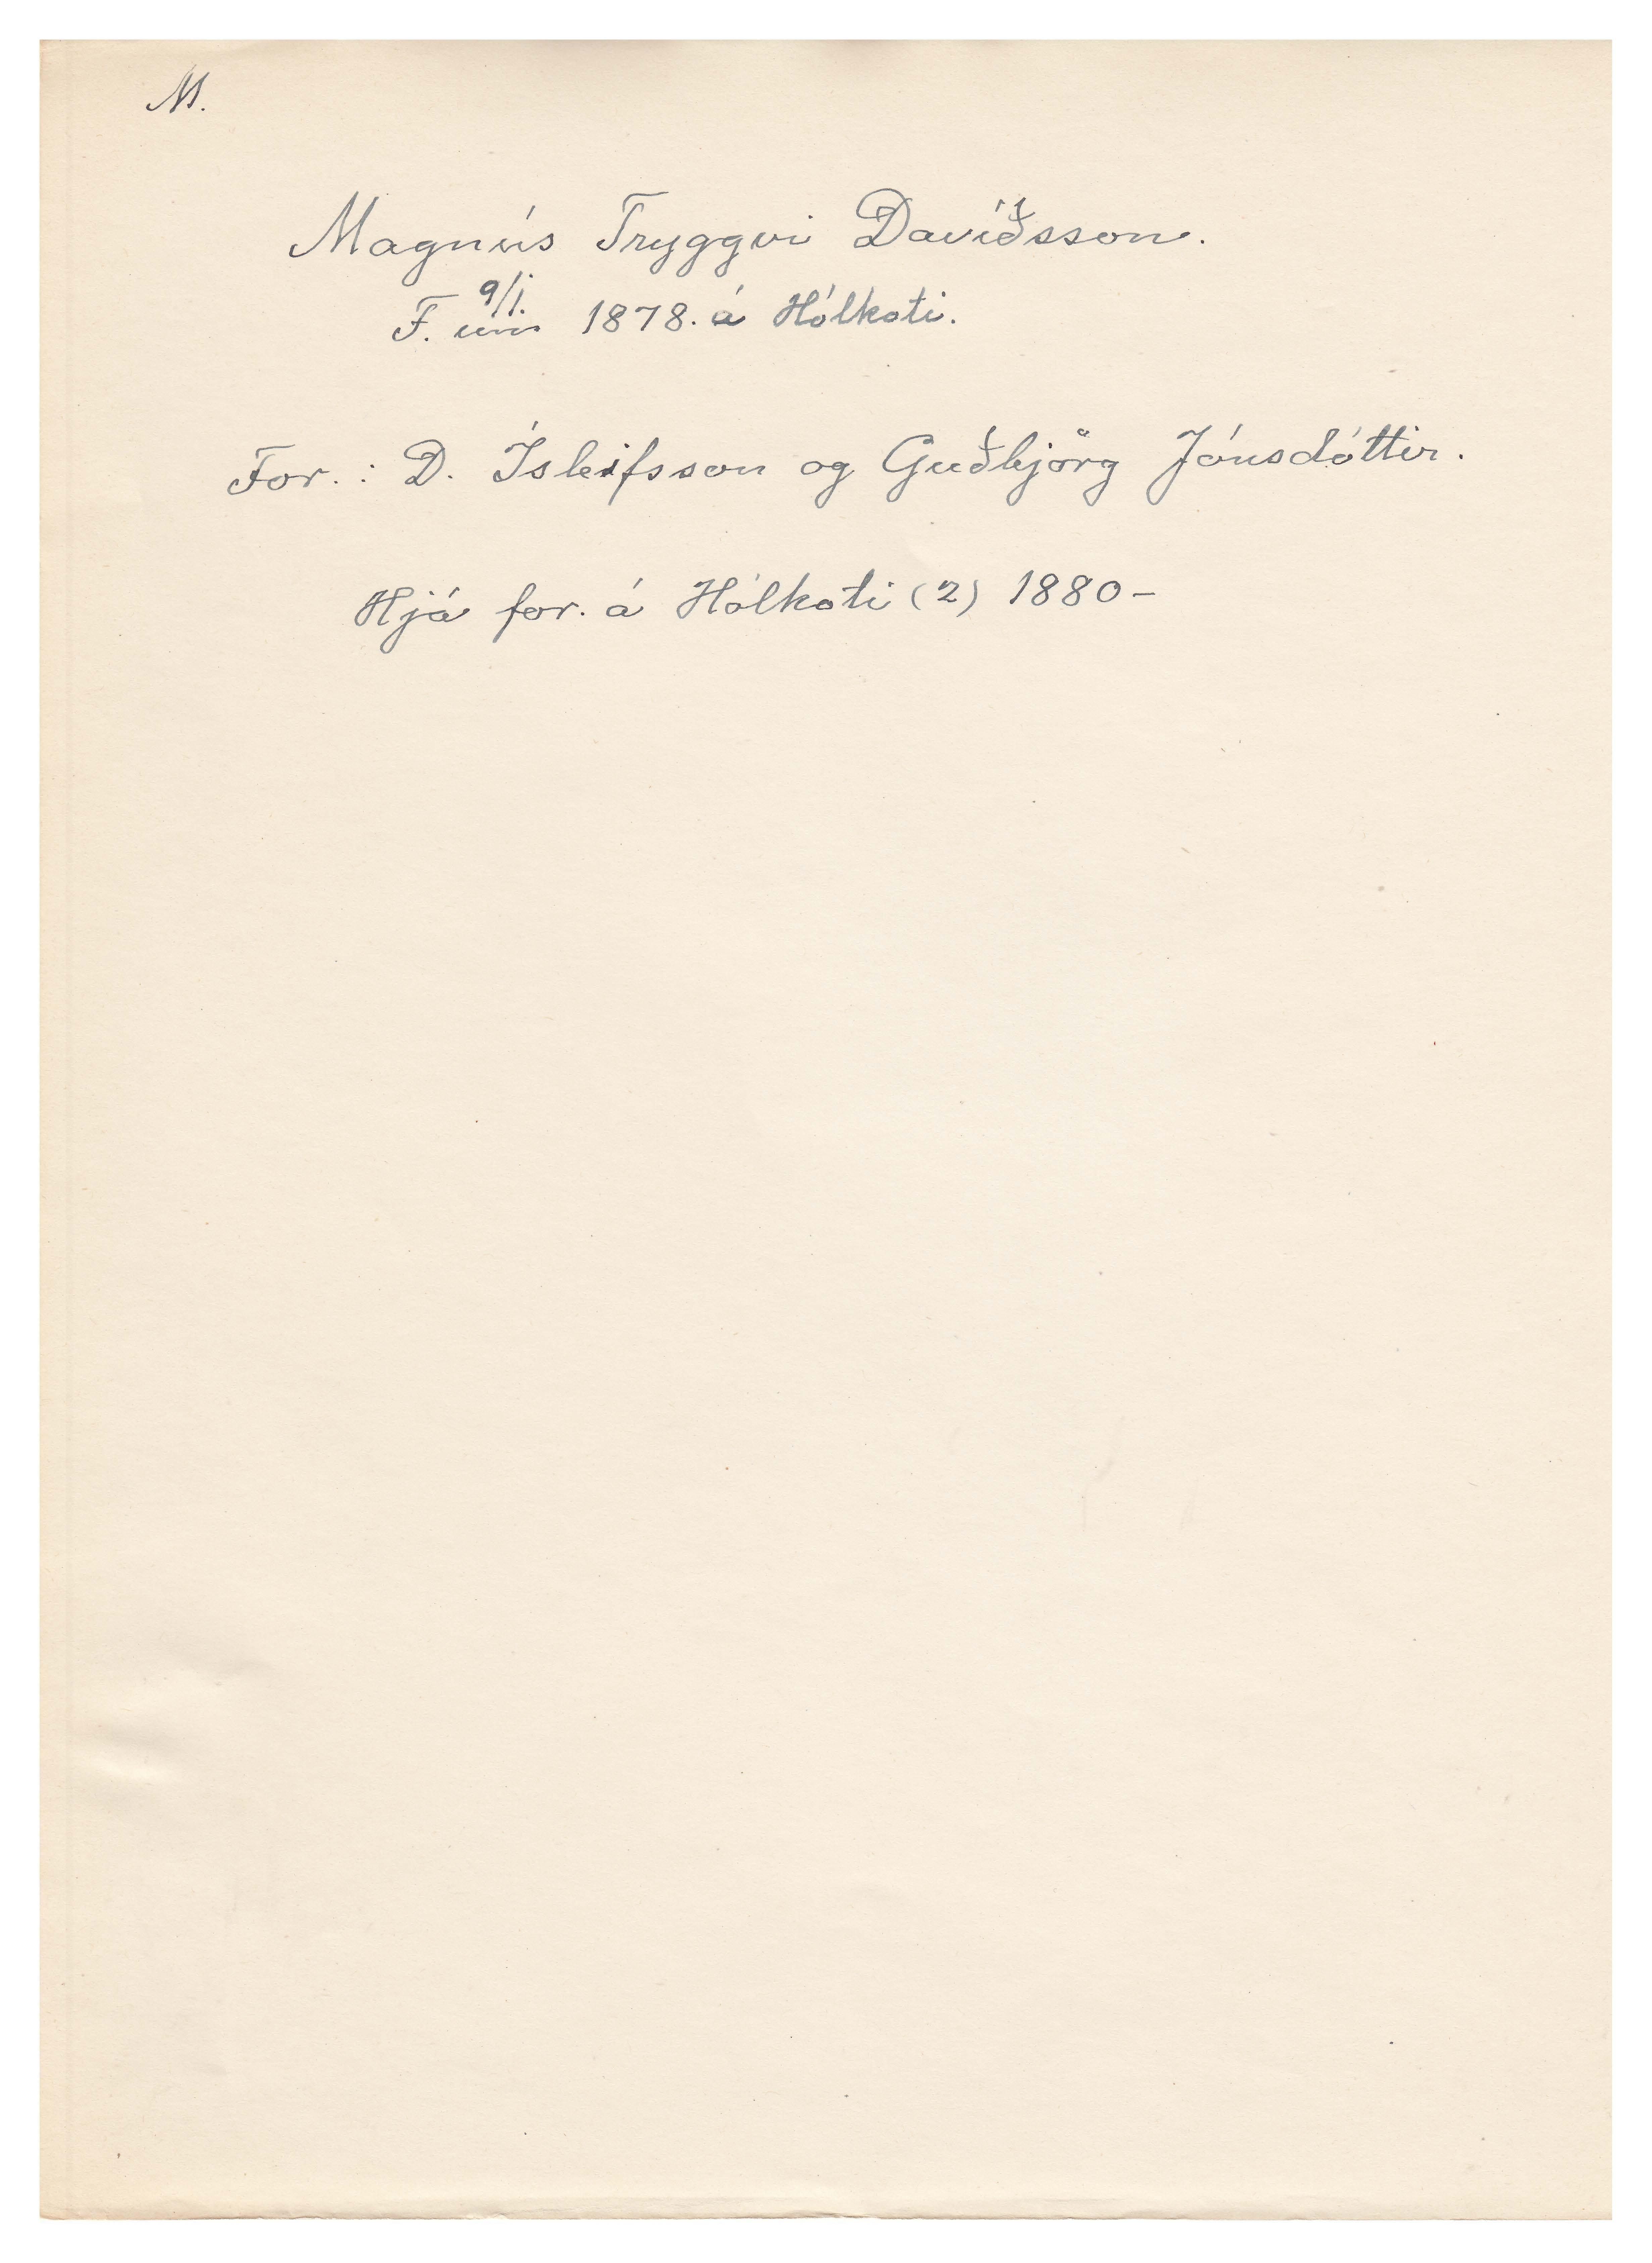 M.
Magnús Tryggvi Davíðsson.
9/1.
F. um 1878. á Hólkoti.
For.: D. Ísleifsson og Guðbjörg Jónsdóttir.
Hjá for. á Hólkoti (2) 1880-